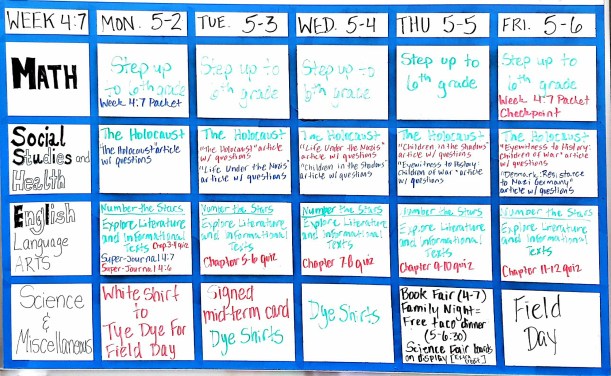 WEEK 4:7
MON. 5-2
TUE. 5-3
WED. 5-4
THU 5-5
FRI. 5-6
MATH
Step up
to 6th grade
Week 4:7 Packet
Step up to
6th grade
Step up to
6th grade
Step up to
6th grade
Step up to
6th grade
Week 4:7 Packet
Checkpoint
Social
Studies and
Health
The Holocaust
"The Holocaust" article
w/ questions
The Holocaust
"The Holocaust" article
w/ questions
"Life Under the Nazis"
article w/ questions
The Holocaust
"Life Under the Nazis"
article w/ questions
"Children in the Shadows"
article w/ questions
The Holocaust
"Children in the Shadows"
article w/ questions
"Eyewitness to History:
Children of War" article
w/ questions
The Holocaust
"Eyewitness to History:
Children of War" article
w/ questions
"Denmark: Resistance
to Nazi Germany"
article w/ questions
English
Language
ARTS
Number the Stars
Explore Literature
and Informational
Texts Chap 3-4 quiz
Super-Journal 4:7
Super-Journal 4:6
Number the Stars
Explore Literature
and Informational
Texts
Chapter 5-6 quiz
Number the Stars
Explore Literature
and Informational
Texts
Chapter 7-8 quiz
Number the Stars
Explore Literature
and Informational
Texts
Chapter 9-10 quiz
Number the Stars
Explore Literature
and Informational
Texts
Chapter 11-12 quiz
Science
&
Miscellaneous
White Shirt
to
Tye Dye For
Field Day
Signed
mid-term card
Dye Shirts
Dye Shirts
Book Fair (4-7)
Family Night=
Free taco dinner
(5-6:30)
Science Fair boards
on display
Field
Day